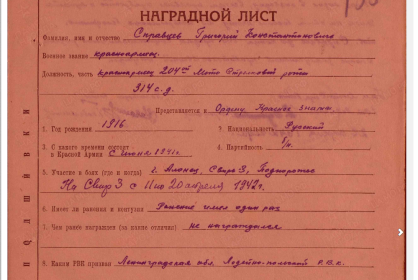 НАГРАДНОЙ ЛИСТ
Фамилия, имя и отчество Григорий Константинович
Военное звание красноармеец
Должность, часть красноармеец 204ой Мото Стрелковой роты
314 с.д.
Представляется к Ордену Красное знамя
1. Год рождения 1916 2. Национальность Русский
3. С какого времени состоит
в Красной Армии с июня 1941г. 4. Партийность б/п
5. Участие в боях (где и когда) г. Олонец, Свирь 3, Подпорожье
На Свирь 3 с 11 по 20 апреля 1942г.
6. Имеет ли ранения и контузии Ранение имел один раз
7. Чем ранее награжден (за какие отличия) не награждался
8. Каким РВК призван Ленинградская обл. Лодейно-польский Р.В.К.
подшивки